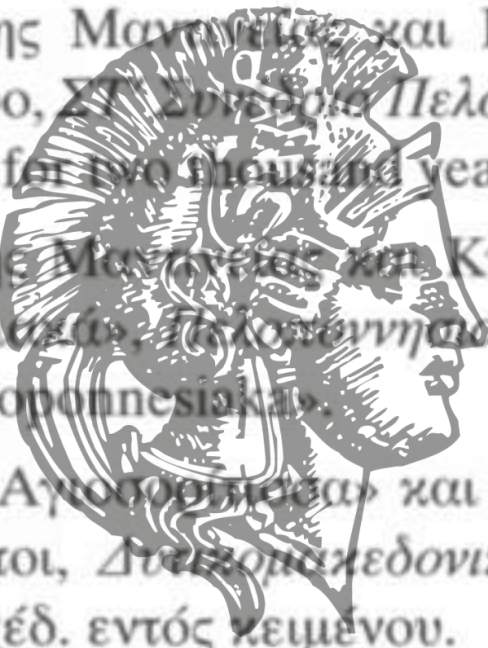 ης Μαντινείας και
ο, ΣΤ' Συνέδριο Πελο
for two thousand yea
Μαντινείας και Κ
Πελοποννησια
oponnesiaka».
και
τοι, Δυτικομακεδονι
έδ. εντός κειμένου.